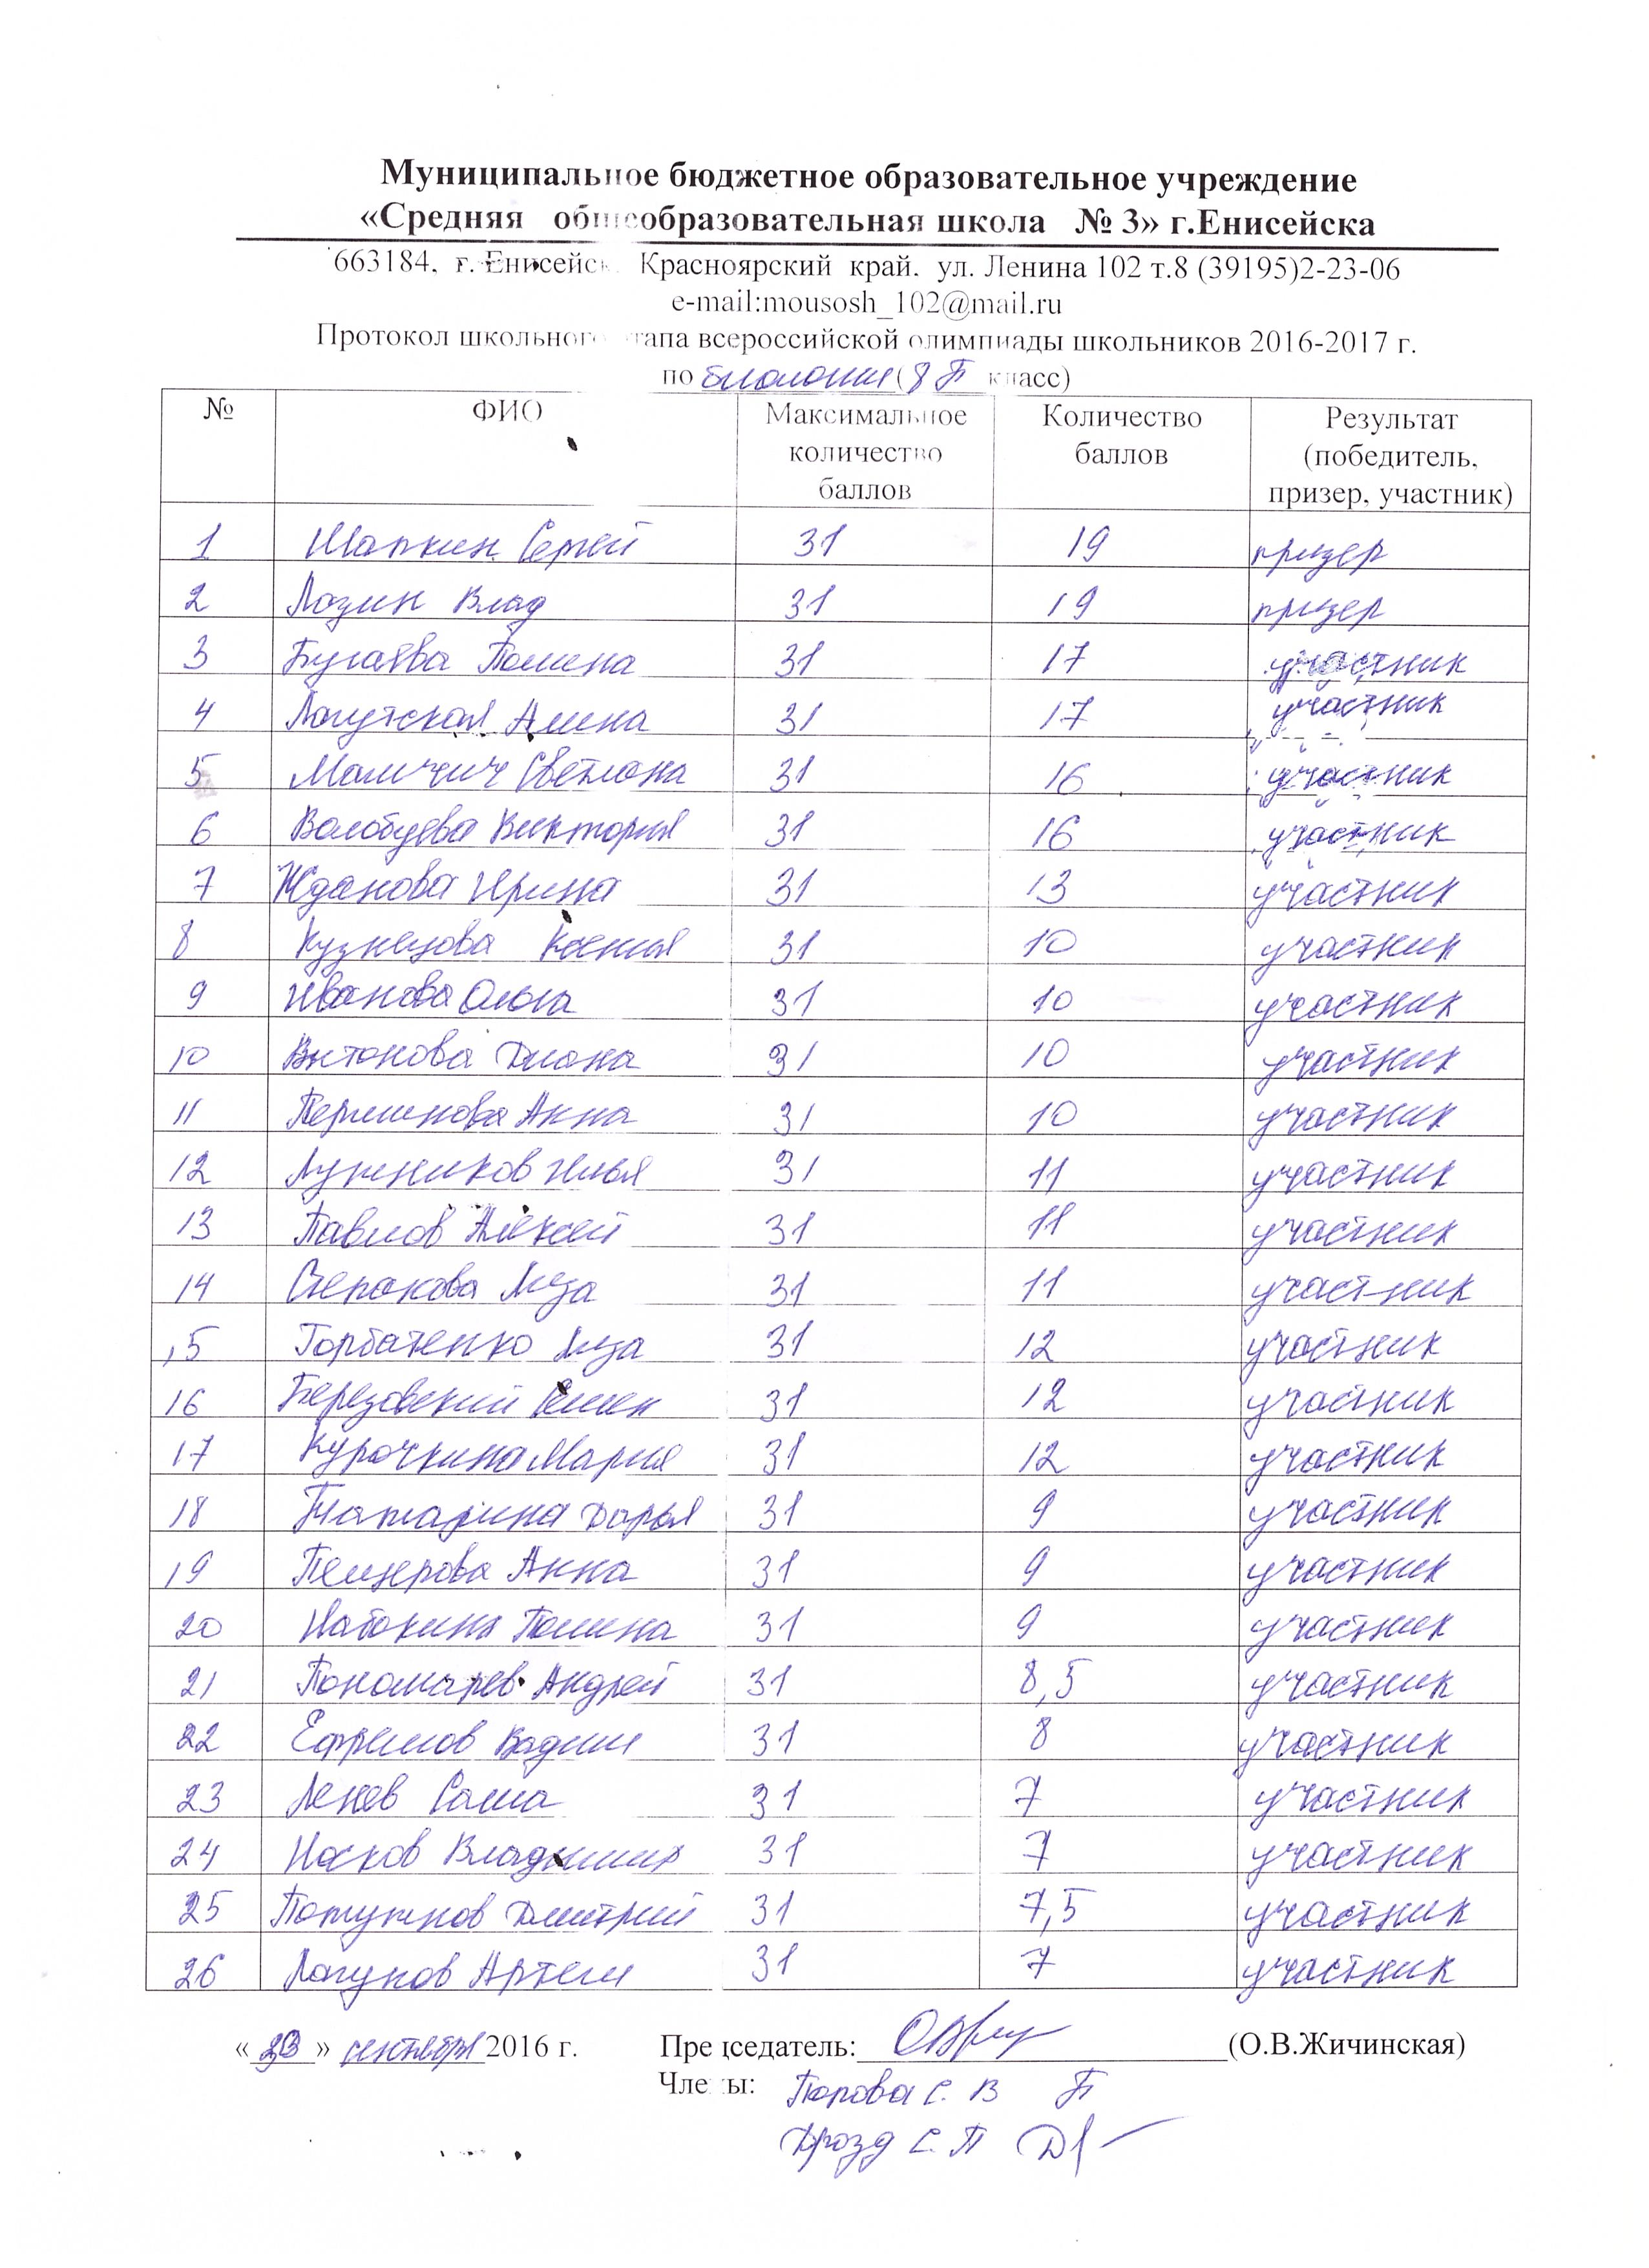 Муниципальное бюджетное образовательное учреждение
«Средняя общеобразовательная школа № 3» г.Енисейска
663184, г. Енисейск Красноярский край, ул. Ленина 102 т.8 (39195)2-23-06
e-mail:mousosh_102@mail.ru
Протокол школьного этапа всероссийской олимпиады школьников 2016-2017 г.
по биологии (8 класс)
№ ФИО Максимальное количество баллов Количество баллов Результат (победитель, призер, участник)
1 Шапкин Сергей 31 19 призер
2 Лазин Влад 31 19 призер
3 Бугаева Полина 31 17 участник
4 Логутская Алина 31 17 участник
5 Мамчич Светлана 31 16 участник
6 Волобуева Виктория 31 16 участник
7 Жданова Ирина 31 13 участник
8 Кузнецова Ксения 31 10 участник
9 Иванова Ольга 31 10 участник
10 Диана 31 10 участник
11 Перминова Анна 31 10 участник
12 Лужников Илья 31 11 участник
13 Павлов Алексей 31 11 участник
14 Степанова Лиза 31 11 участник
15 Горбатенко Лиза 31 12 участник
16 Березовский Семен 31 12 участник
17 Курочкина Мария 31 12 участник
18 Татарина Дарья 31 9 участник
19 Пещерова Анна 31 9 участник
20 Набокина Полина 31 9 участник
21 Пономарев Андрей 31 8,5 участник
22 Ефремов Вадим 31 8 участник
23 Ленев Саша 31 7 участник
24 Носков Владимир 31 7 участник
25 Потужнов Дмитрий 31 7,5 участник
26 Логунов Артем 31 7 участник
« » сентября 2016 г. Председатель: (О.В.Жичинская)
Члены: Попова С. В
Дрозд С. П